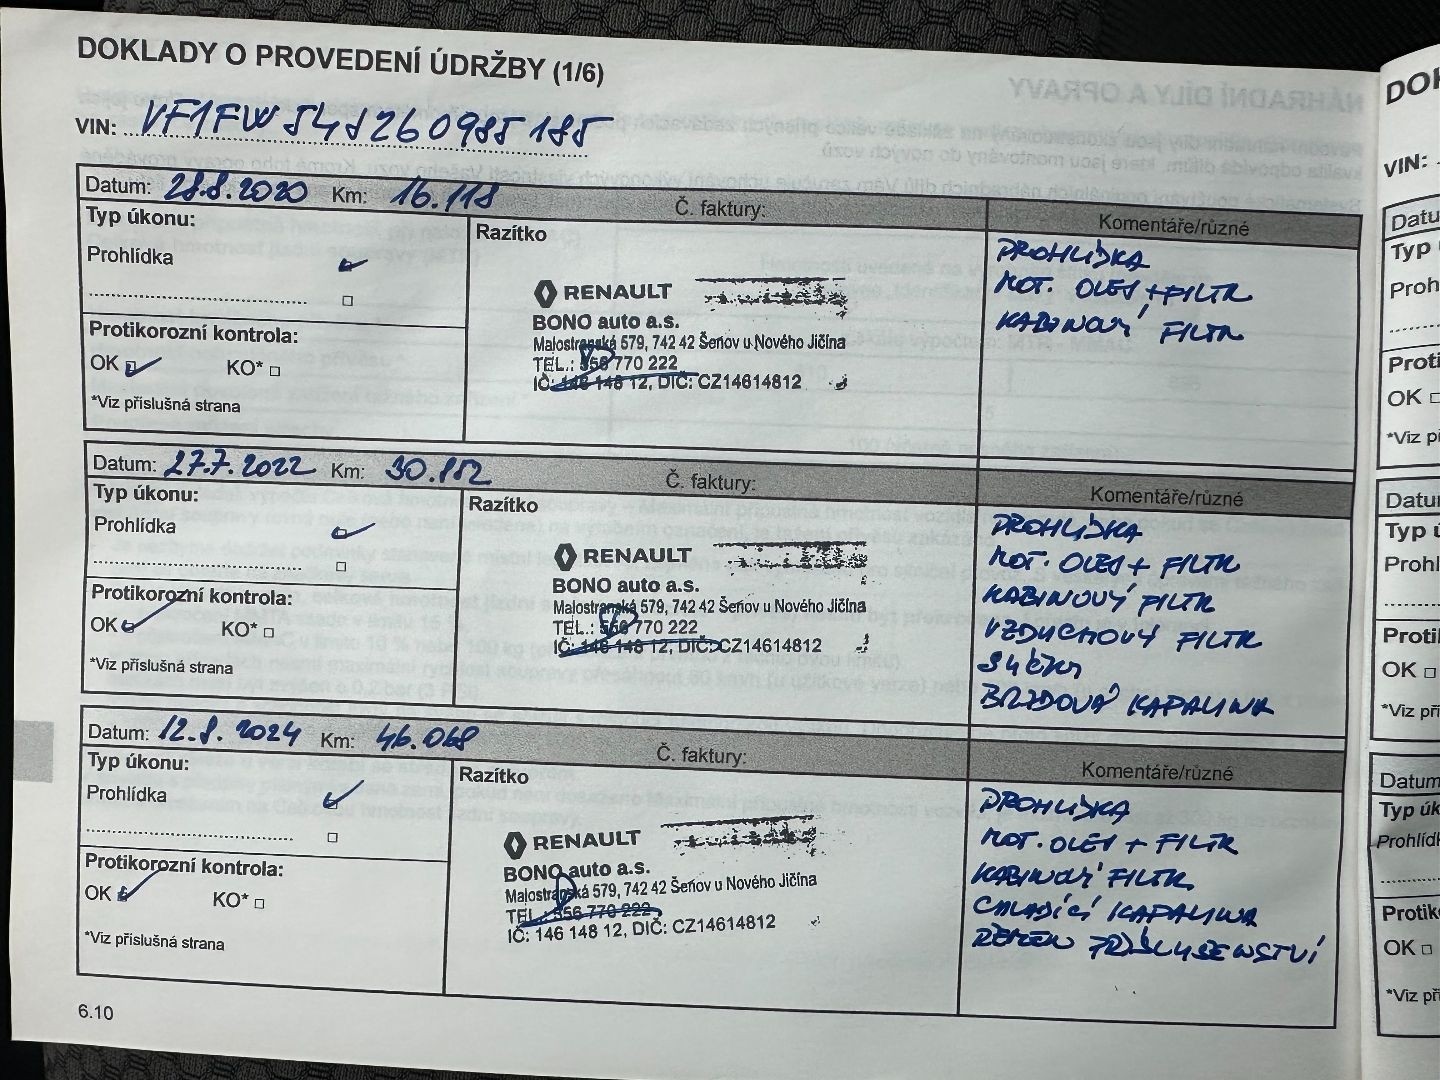 DOKLADY O PROVEDENÍ ÚDRŽBY (1/6)
VIN: VF1FW54S260985185
Datum: 28.8.2020 Km: 16.118 Č. faktury:
Komentáře/různé
Typ úkonu:
Prohlídka
Protikorozní kontrola:
OK KO*
*Viz příslušná strana
Razítko
RENAULT
BONO auto a.s.
Malostranská 579, 742 42 Šenov u Nového Jičína
TEL.: 556 770 222
IČ: 146 148 12, DIČ: CZ14614812
PROHLÍDKA
MOT. OLEJ + FILTR
KABINOVÝ FILTR
Datum: 27.7.2022 Km: 30.152 Č. faktury:
Komentáře/různé
Typ úkonu:
Prohlídka
Protikorozní kontrola:
OK KO*
*Viz příslušná strana
Razítko
RENAULT
BONO auto a.s.
Malostranská 579, 742 42 Šenov u Nového Jičína
TEL.: 556 770 222
IČ: 146 148 12, DIČ: CZ14614812
PROHLÍDKA
MOT. OLEJ + FILTR
KABINOVÝ FILTR
VZDUCHOVÝ FILTR
SVÍČKY
BRZDOVÁ KAPALINA
Datum: 12.8.2024 Km: 46.068 Č. faktury:
Komentáře/různé
Typ úkonu:
Prohlídka
Protikorozní kontrola:
OK KO*
*Viz příslušná strana
Razítko
RENAULT
BONO auto a.s.
Malostranská 579, 742 42 Šenov u Nového Jičína
TEL.: 556 770 222
IČ: 146 148 12, DIČ: CZ14614812
PROHLÍDKA
MOT. OLEJ + FILTR
KABINOVÝ FILTR
CHLADÍCÍ KAPALINA
ŘEMEN PŘÍSLUŠENSTVÍ
6.10
VIN:
Typ
OK
*Viz
OK
*Viz
Datum
Typ
OK
*Viz